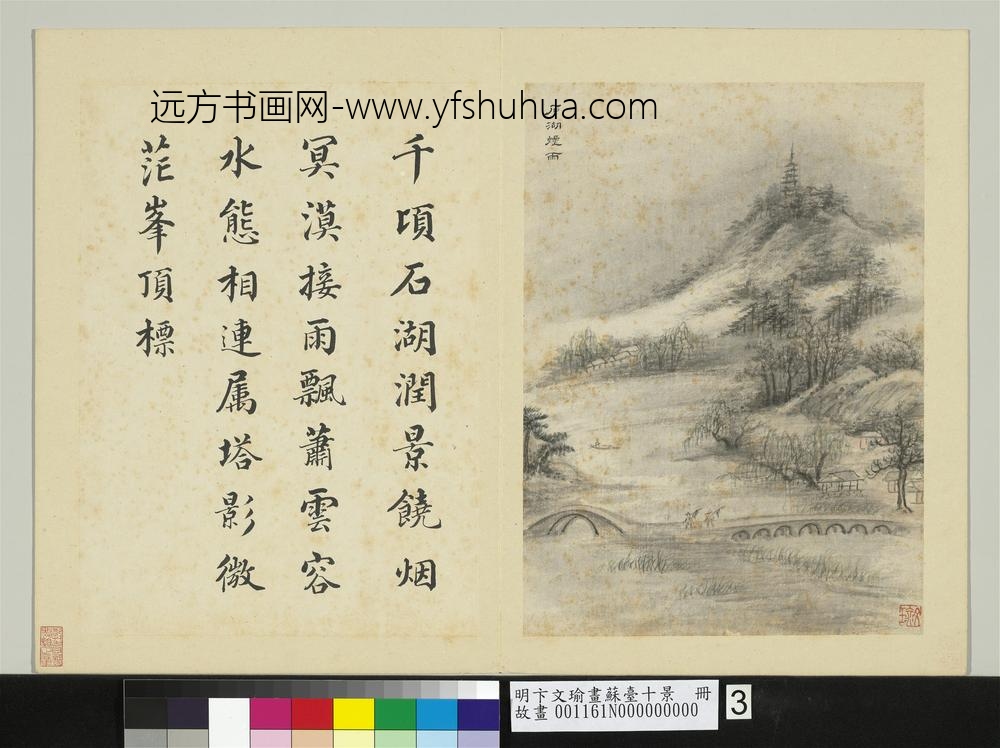 远方书画网-www.yfshuhua.com
千頃石湖潤景饒烟
冥漠接雨飄蕭雲容
水態相連属塔影微
茫峯頂標
石湖煙雨
明卞文瑜畫蘇臺十景 冊
故畫 001161N000000000
3